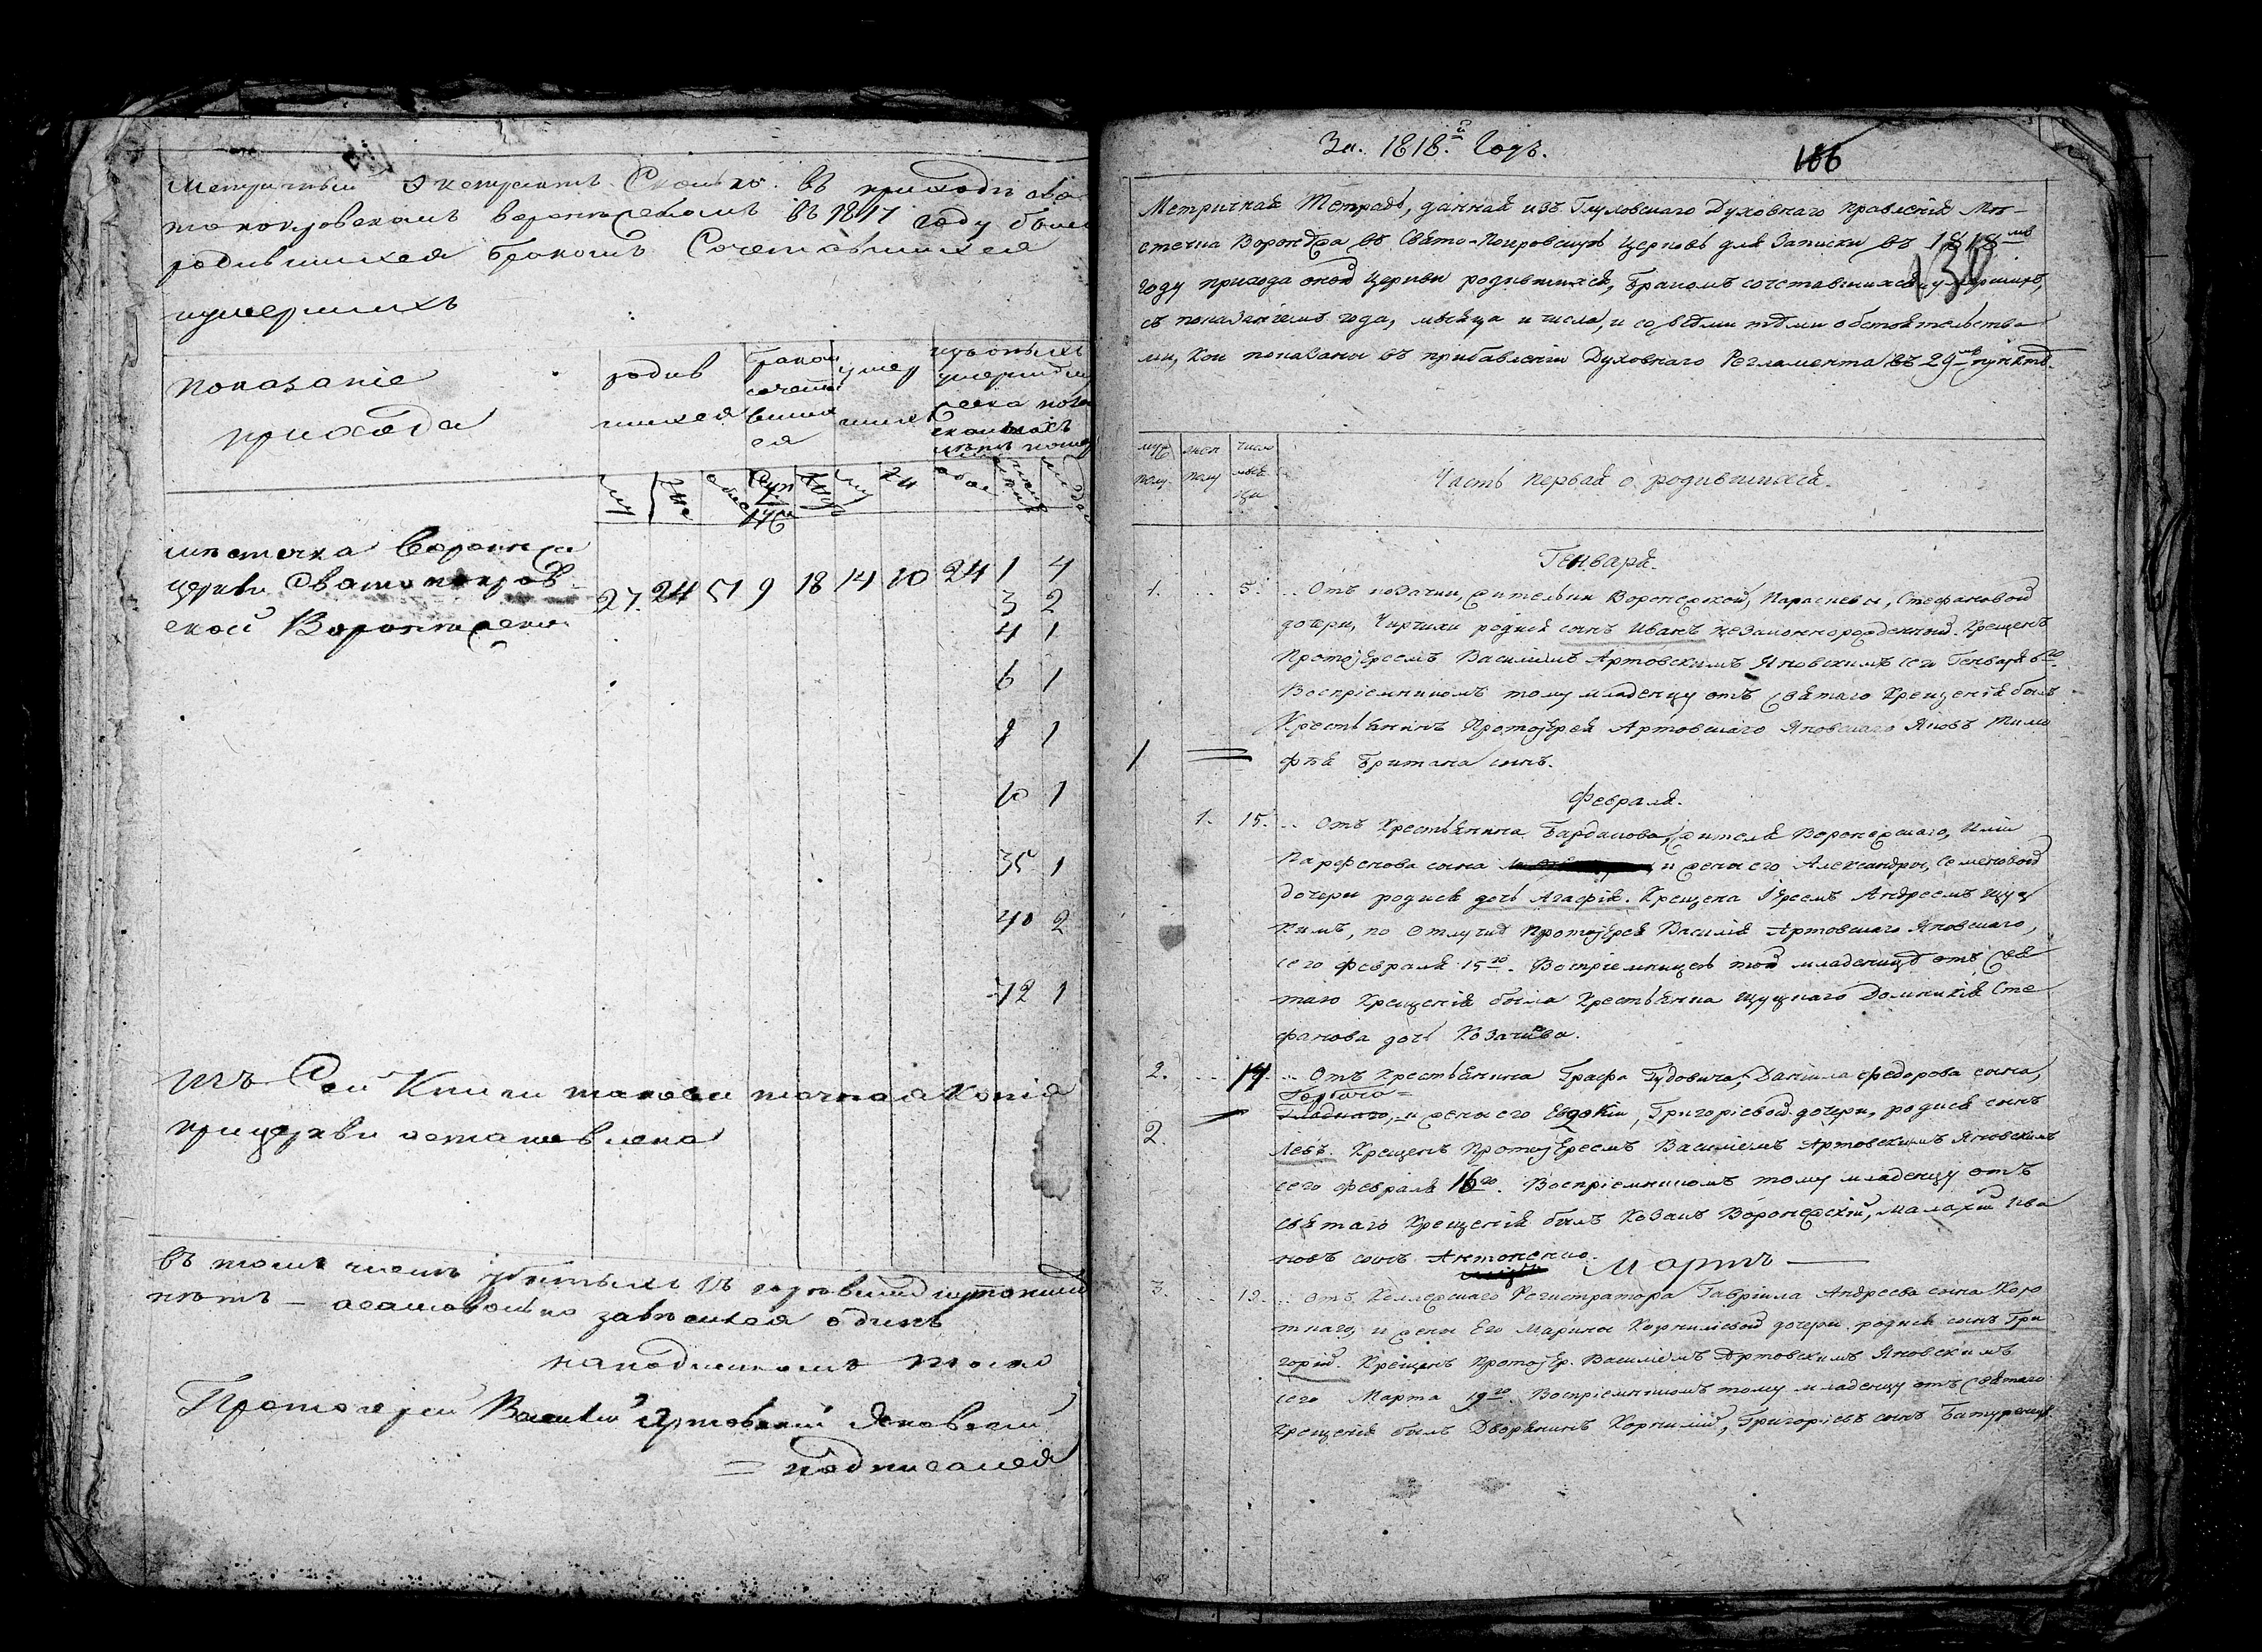 Метричный экстрактъ Сколко въ приходѣ свя
топокровскомъ воронежскомъ въ 1817 году было
родившихся бракомъ Сочетавшихся
иумершихъ
показаніе
прихода
родив
шихся
браком
сочета
вших
ся
умер
ших
местечка Воронежа
церкви Святопокров
ской Воронежской
27. 24 51 9 18 14 10 24 1 4
3 2
4 1
6 1
8 1
10 1
35 1
40 2
72 1
изъ Сей Книги такова точная копія
прицеркви оставлена
въ томъ числѣ убитыхъ
нѣтъ — одинъ
наподлинномъ тако
Протоіерей Василій Артовский Яновский
= подписался
За. 1818.й Годъ.
166
Метричная Тетрадь, данная изъ Глуховскаго Духовнаго Правленія Мѣ-
стечка Воронежа въ Свято-Покровскую Церковь для Записки въ 1818мъ
130
году прихода оной Церкви родившихся, Бракомъ сочетавшихся и умершихъ,
съ показаніемъ года, мѣсяца и числа, и со всѣми тѣми обстоятельства
ми, кои показаны въ прибавленіи Духовнаго Регламента въ 29мъ пунктѣ.
муж
полу.
жен
полу
число
мѣся
ца
Часть Первая о родившихся.
Генваря.
1. .. 5. .. Отъ козачки, жительки Воронежской, Параскевы, Стефановой
дочери, Чирчихи родися сынъ Иванъ незаконнорожденный. Крещенъ
Протоіереемъ Василіемъ Артовскимъ Яновскимъ сего Генваря 6го.
Воспріемникомъ тому младенцу отъ святаго Крещенія былъ
Крестьянинъ Протоіерея Артовскаго Яновскаго Яковъ Тимо
1
фѣя Притана сынъ.
Февраля.
1. 15. .. Отъ Крестьянина Бардакова, жителя Воронежскаго, Иліи
Парфенова сына и жены его Александры, Семеновой
дочери родися дочь Агафія. Крещена Іереемъ Андреемъ Щуц
кимъ, по Отлучкѣ Протоіерея Василія Артовскаго Яновскаго,
сего Февраля 15го. Воспріемницею той младеницѣ отъ Свя
таго Крещенія была Крестьянка Щуцкаго Домникія Сте
фанова дочь Козачкова.
2. .. 14. .. Отъ Крестьянина Графа Гудовича, Даніила Федорова сына,
2.
и жены его Евдокіи, Григоріевой дочери, родися сынъ
Левъ. Крещенъ Протоіереемъ Василіемъ Артовскимъ Яновскимъ
сего Февраля 16го. Воспріемникомъ тому младенцу отъ
святаго Крещенія былъ Козакъ Воронежскій, Малахій Ива
новъ сынъ Антоненко.
Мартъ —
3. .. 19. .. Отъ Коллежскаго Регистратора Гавріила Андреева сына Коро
ткаго, и жены Его Марины Корниліевой дочери родися сынъ Гри
горій. Крещенъ Протоіер. Василіемъ Артовскимъ Яновскимъ
сего Марта 19го. Воспріемникомъ тому младенцу отъ святаго
Крещенія былъ Дворянинъ Корнилій, Григоріевъ сынъ Батуренко